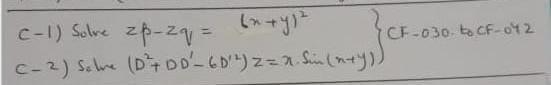 C-1) Solve zp-zq = (x+y)²
C-2) Solve (D²+DD'-6D'²)z = x.Sin(x+y)
} CF-030. to CF-042